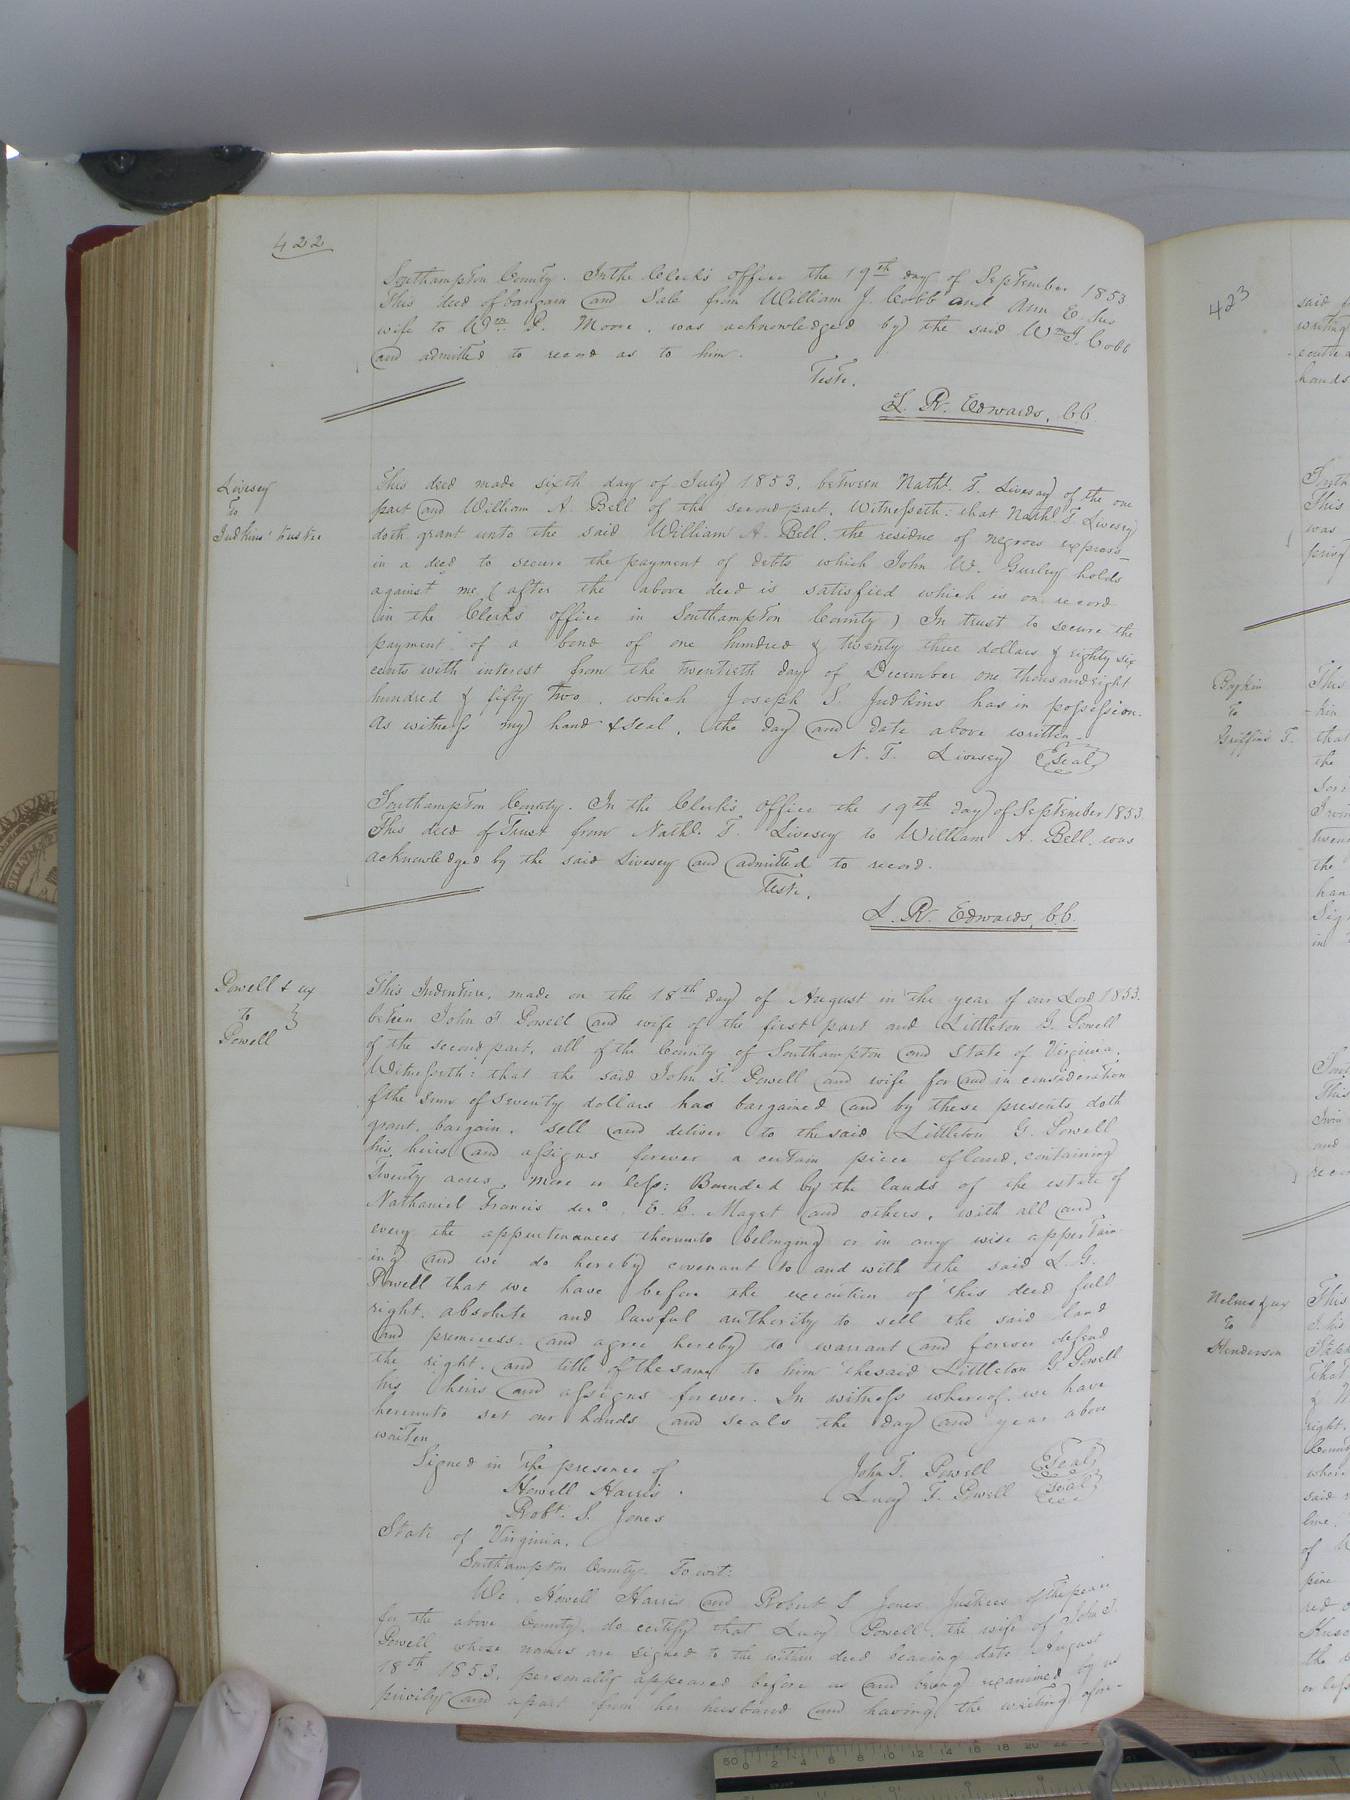 422
Southampton County. In the Clerk's office the 19th day of September 1853
This deed of bargain and Sale from William J. Cobb and Ann E. his
wife to Wm. P. Moore, was acknowledged by the said Wm. J. Cobb
and admitted to record as to him.
Teste,
L. R. Edwards, CC.
Livesey
to
Judkins' trustee
This deed made sixth day of July 1853, between Nathl. T. Livesay of the one
part and William A. Bell of the second part, Witnesseth: that Nathl T Livesey
doth grant unto the said William A. Bell, the residue of negroes express
in a deed to secure the payment of debts which John W. Gurley holds
against me, (after the above deed is satisfied which is on record
in the Clerk's office in Southampton County) In trust to secure the
payment of a bond of one hundred & twenty three dollars & eighty six
cents with interest from the twentieth day of December one thousand eight
hundred & fifty two, which Joseph S. Judkins has in possession.
As witness my hand & seal, the day and date above written.
N. T. Livesey (Seal)
Southampton County. In the Clerk's Office the 19th day of September 1853.
This deed of Trust from Nathl. T. Livesey to William A. Bell, was
acknowledged by the said Livesey and admitted to record.
Teste,
L. R. Edwards, CC.
Powell & ux
to }
Powell
This Indenture, made on the 18th day of August in the year of our Lord 1853.
beteen John T Powell and wife of the first part and Littleton G. Powell
of the second part, all of the County of Southampton and State of Virginia.
Witnesseth: that the said John T. Powell and wife for and in consideration
of the sum of Seventy dollars has bargained and by these presents doth
grant, bargain, sell and deliver to the said Littleton G. Powell
his, heirs and assigns forever a certain piece of land, containing
Twenty acres, more or less: Bounded by the lands of the estate of
Nathaniel Francis decd., E. C. Maget and others, with all and
every the appurtenances thereunto belonging or in any wise appertain
ing and we do hereby covenant to and with the said L. G.
Powell that we have before the execution of this deed full
right, absolute and lawful authority to sell the said land
and premecess, and agree hereby to warrant and forever defend
the right, and title of the same to him the said Littleton G. Powell
his heirs and assigns forever. In witness whereof, we have
hereunto set our hands and seals the day and year above
written
Signed in the presence of
Howell Harris.
Robt. S. Jones
John T. Powell (Seal)
Lucy F. Powell (Seal)
State of Virginia.
Southampton County. To wit:
We, Howell Harris and Robert S Jones Justices of the peace
for the above County, do certify that Lucy Powell, the wife of John T.
Powell whose names are signed to the within deed bearing date August
18th 1853, personally appeared before us and being examined by us
privily and apart from her husband and having the writing afore-
423
said
writing
hands
This
was
privy
Boykin
to
Griffin's T.
This
that
the
twen
the
han
in
This
and
Nelms & ux
to
Henderson
This
his
That
right,
where
said
line,
of
pine
red
the
or less